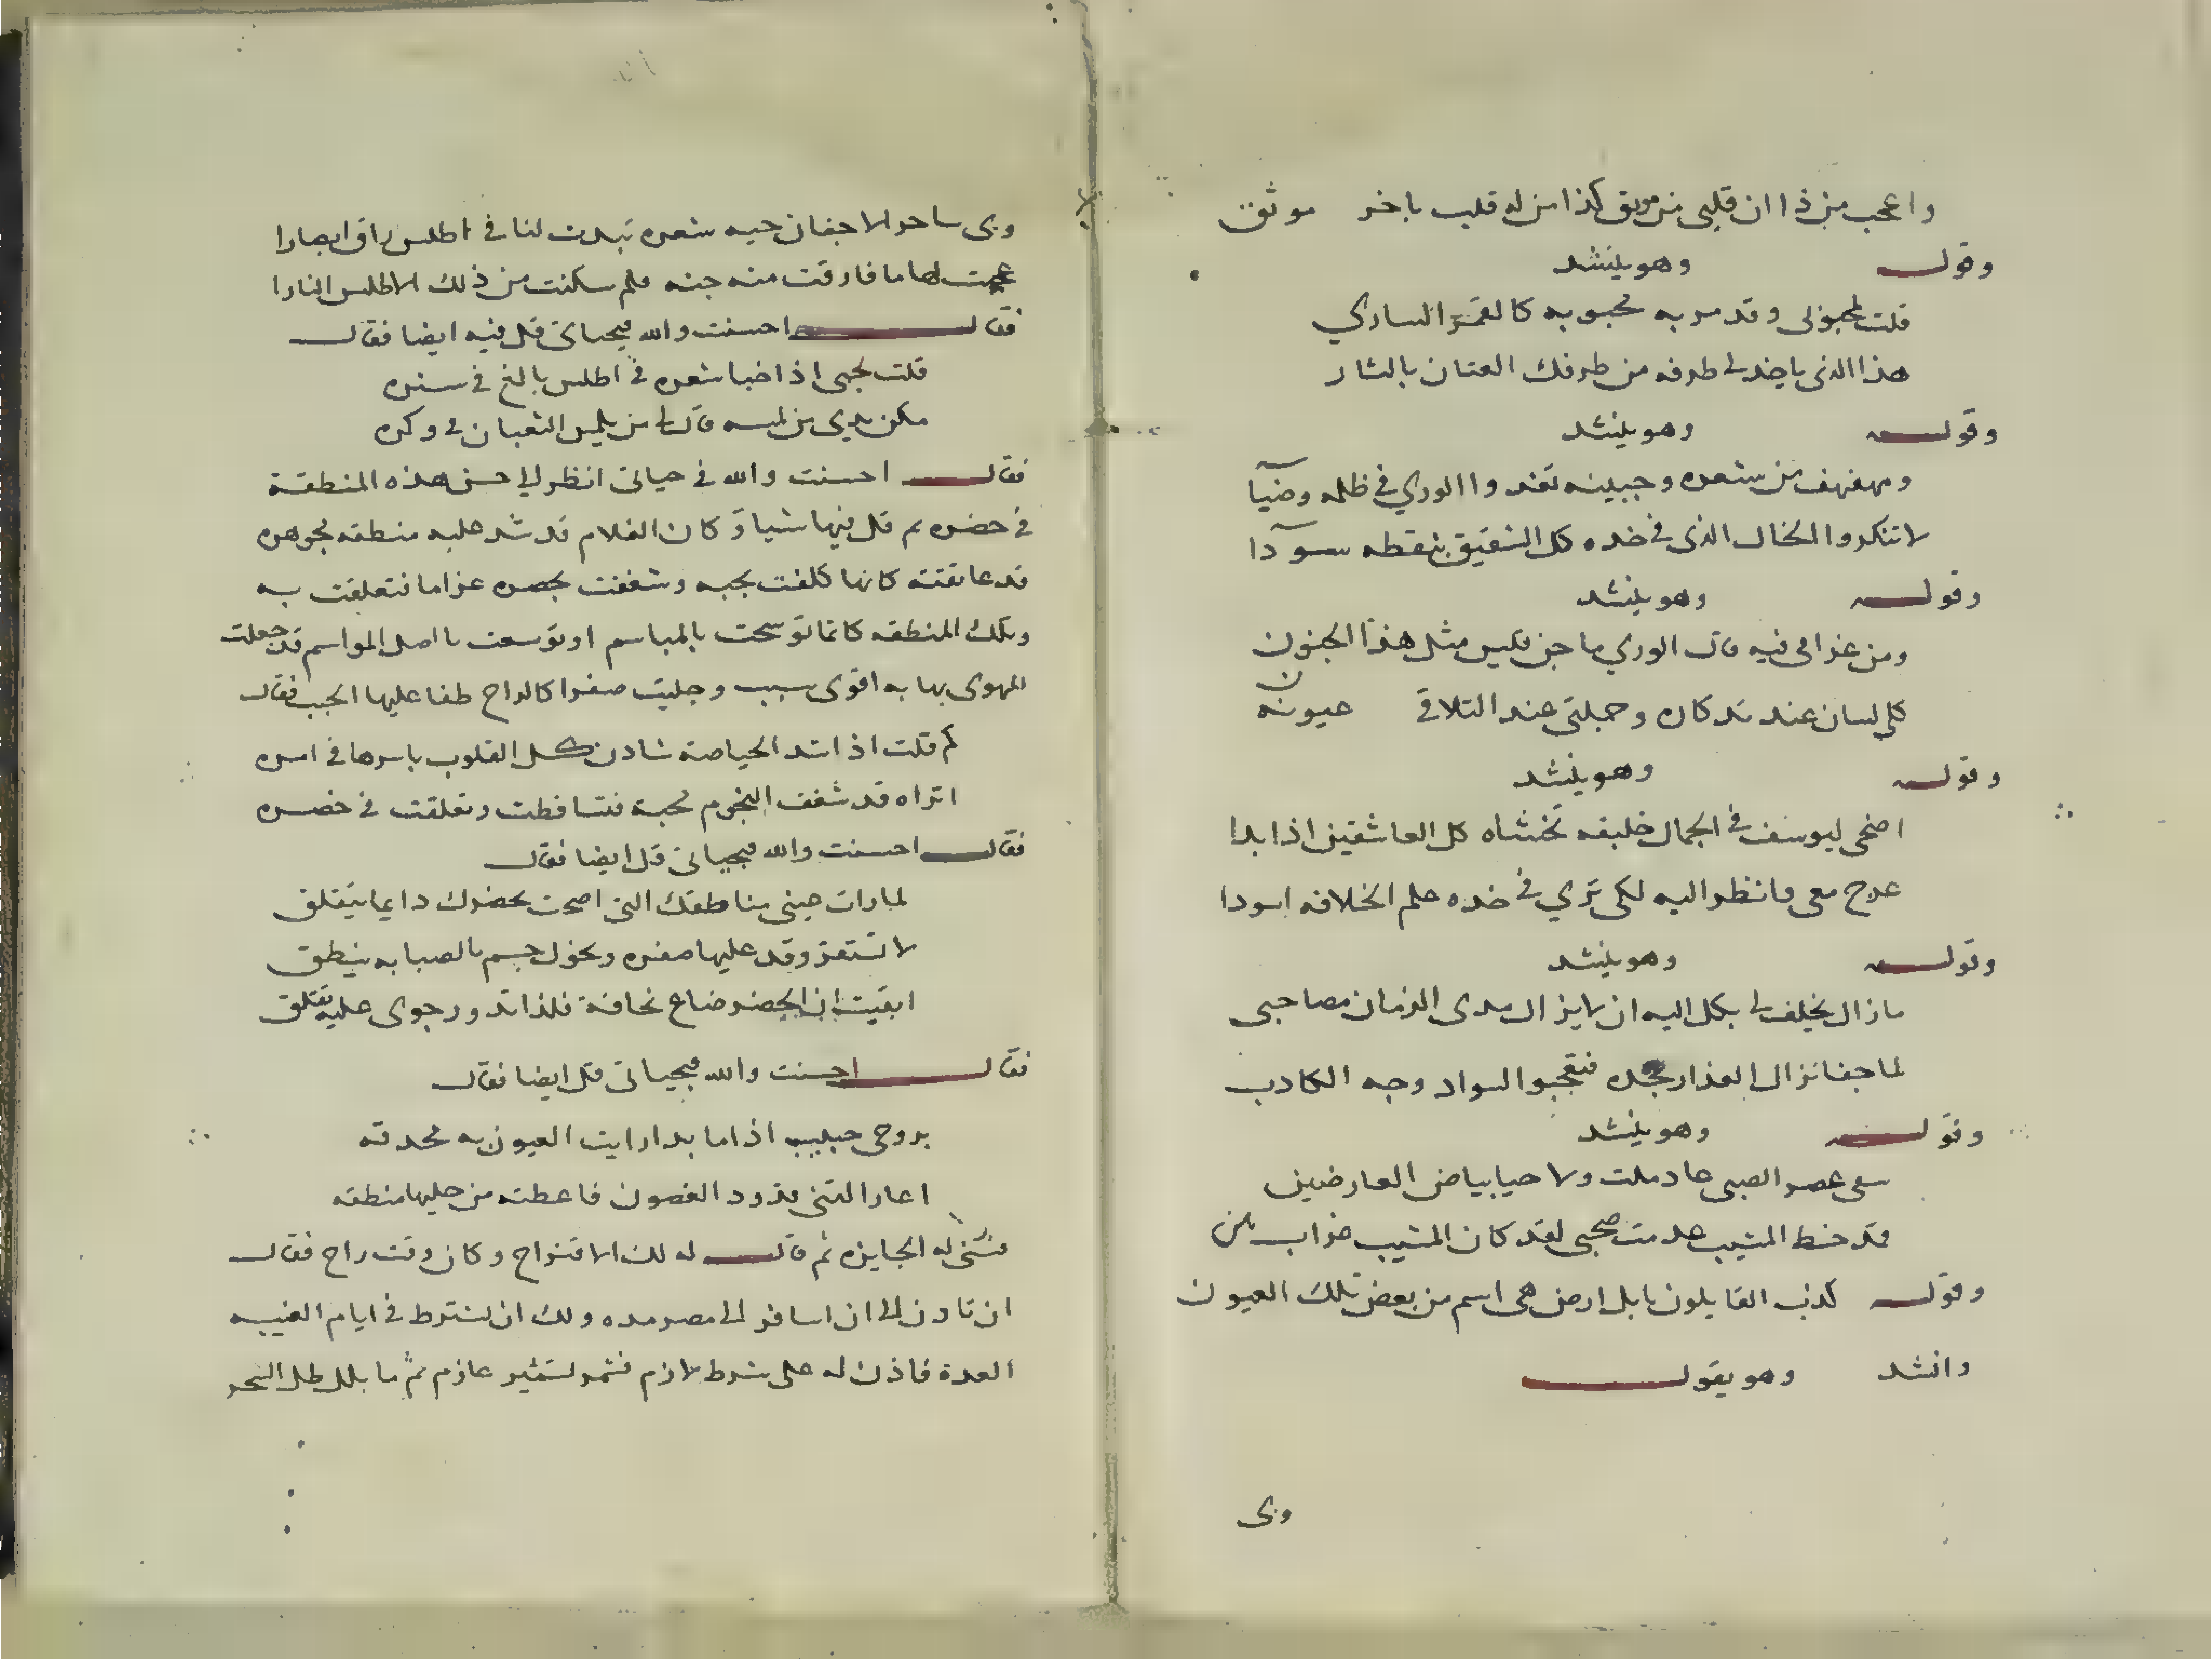 واعجب من ذا ان قلبي من موثق كذا من له قلب باخر موثق
وقوله وهو ينشد
قلت لمحبوبي وقد مر به محبوبه كالقمر الساري
هذا الذي ياخذ لي طرفه من طرفك الفتان بالثار
وقوله وهو ينشد
ومهفهف من شعره وجبينه تغدوا الوري في ظلمه وضيآ
لا تنكروا الخال الذي في خده كل الشقيق بنقطه سودآ
وقوله وهو ينشد
ومن غرامي فيه قال الوري ما جن قيس مثل هذا الجنون
كلي لسان عند تدكاره وجملتي عند التلاقي عيونه
وقوله وهو ينشد
اضحى ليوسف في الجمال خليفه تخشاه كل العاشقين اذا بدا
عرج معي وانظر اليه لكي تري في خده علم الخلافه اسودا
وقوله وهو ينشد
مازال يحلف لي بكل اليه ان لا يزال مدى الزمان مصاحبي
لما جفا نزل العذار بخده فتعجبوا لسواد وجه الكادب
وقوله وهو ينشد
سعى عصر الصبى عاد ملت ولا حيا بياض العارضين
قد خط المشيب عدمت صحبي لقد كان المشيب غراب بين
وقوله كذب القايلون بابل ارض هي اسم من بعض تلك العيون
وانشد وهو يقول
وبي
وبي ساحر الاجفان حيه شعره تبدت لنا في اطلس راق ابصارا
عجبت لها ما فارقت منه جنه فلم سكنت من ذلك الاطلس النارا
فقال احسنت والله بحياتي قل فيه ايضا فقال
قلت لحبي اذ اخبا شعره في اطلس بالغ في ستره
مكن يدي من لمسه قال لي من يلمس الثعبان في وكره
فقال احسنت والله في حياتي انظر الي حسن هذه المنطقة
في خصره ثم قل فيها شيا وكان الغلام قد شد عليه منطقه مجوهره
قد عانقته كانها كلفت بحبه وشغفت بخصره غراما فتعلقت به
وتلك المنطقه كانما توشحت بالمباسم او توسعت باصل المواسم قد جعلت
الهوى بها به اقوى سبب وجليت صفرا كالراح طفا عليها الحبب فقال
كم قلت اذ شد الحياصة شادن كل القلوب باسرها في اسره
اتراه قد شغف النجوم محبة فتساقطت وتعلقت في خصره
فقال احسنت والله بحياتي قل ايضا فقال
لما رات عيني مناطقك التي اضحت بخصرك دايما تتقلق
لا تستقر وقد عليها صفره ونحول جسم بالصبابه ينطق
ايقنت ان الخصر ضاع نحافة فلذا تدور جوى عليه تقلق
فقال احسنت والله بحياتي قل ايضا فقال
بروحي حبيب اذا ما بدا رايت العيون به محدقه
اعار التثني قدود الغصون فاعطته من حليها منطقه
فسنى له الجايزه ثم قال له لك الاقتراح وكان وقت راح فقال
ان تاذن لي ان اسافر الى مصر مده ولك ان تشترط في ايام الغيبه
العدة فاذن له على شرط لازم فشمر تشمير عازم ثم ما بلل طل السحر